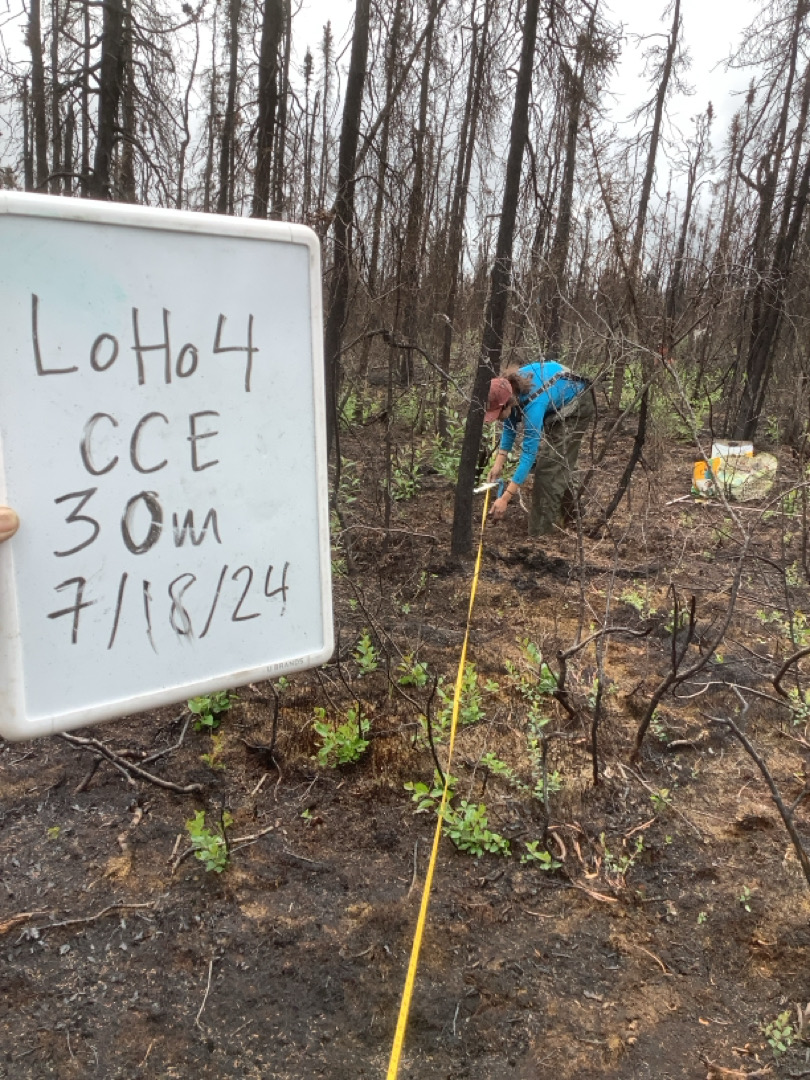 LoHo4
CCE
30m
7/18/24
U BRANDS